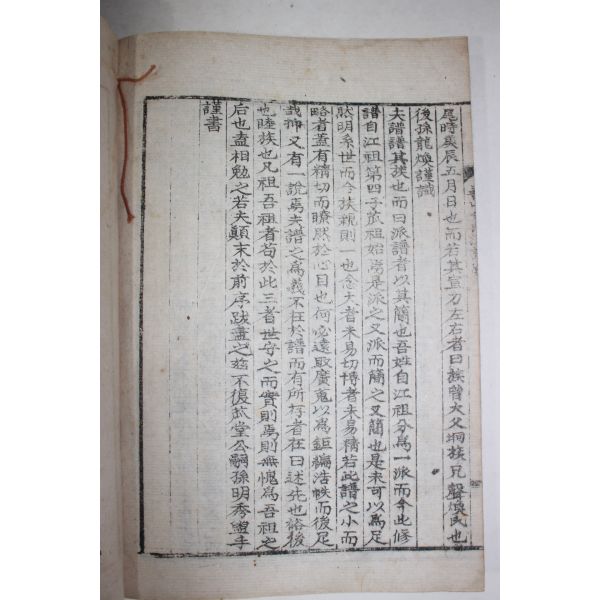 尾時戊辰五月日也而若其宣力左右者曰族曾大父炯族兄聲煥氏也
後孫龍煥謹識
夫譜譜其族也而曰派譜者以其簡也吾姓自江祖分爲一派而今此修
譜自江祖第四子 祖始焉是派之又派而簡之又簡也是未可以爲足
然明系世而合族親則一也念大者未易切博者未易精若此譜之小而
略者盖有精切而瞭然於心目也何必遠取廣蒐以爲鉅編浩帙而後足
哉抑又有一說焉夫譜之爲義不在於譜而有所存者在曰述先也裕後
也睦族也凡祖吾祖者苟於此三者世守之而實則焉則無愧爲吾祖之
后也盍相勉之若夫顚末於前序跋盡之玆不復 堂公嗣孫明秀盥手
謹書